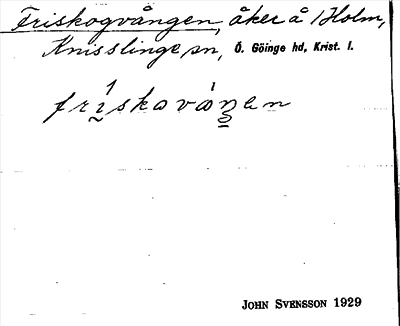 Friskogvången, åker å 1 Holm,
Knisslinge sn, Ö. Göinge hd, Krist. l.
JOHN SVENSSON 1929